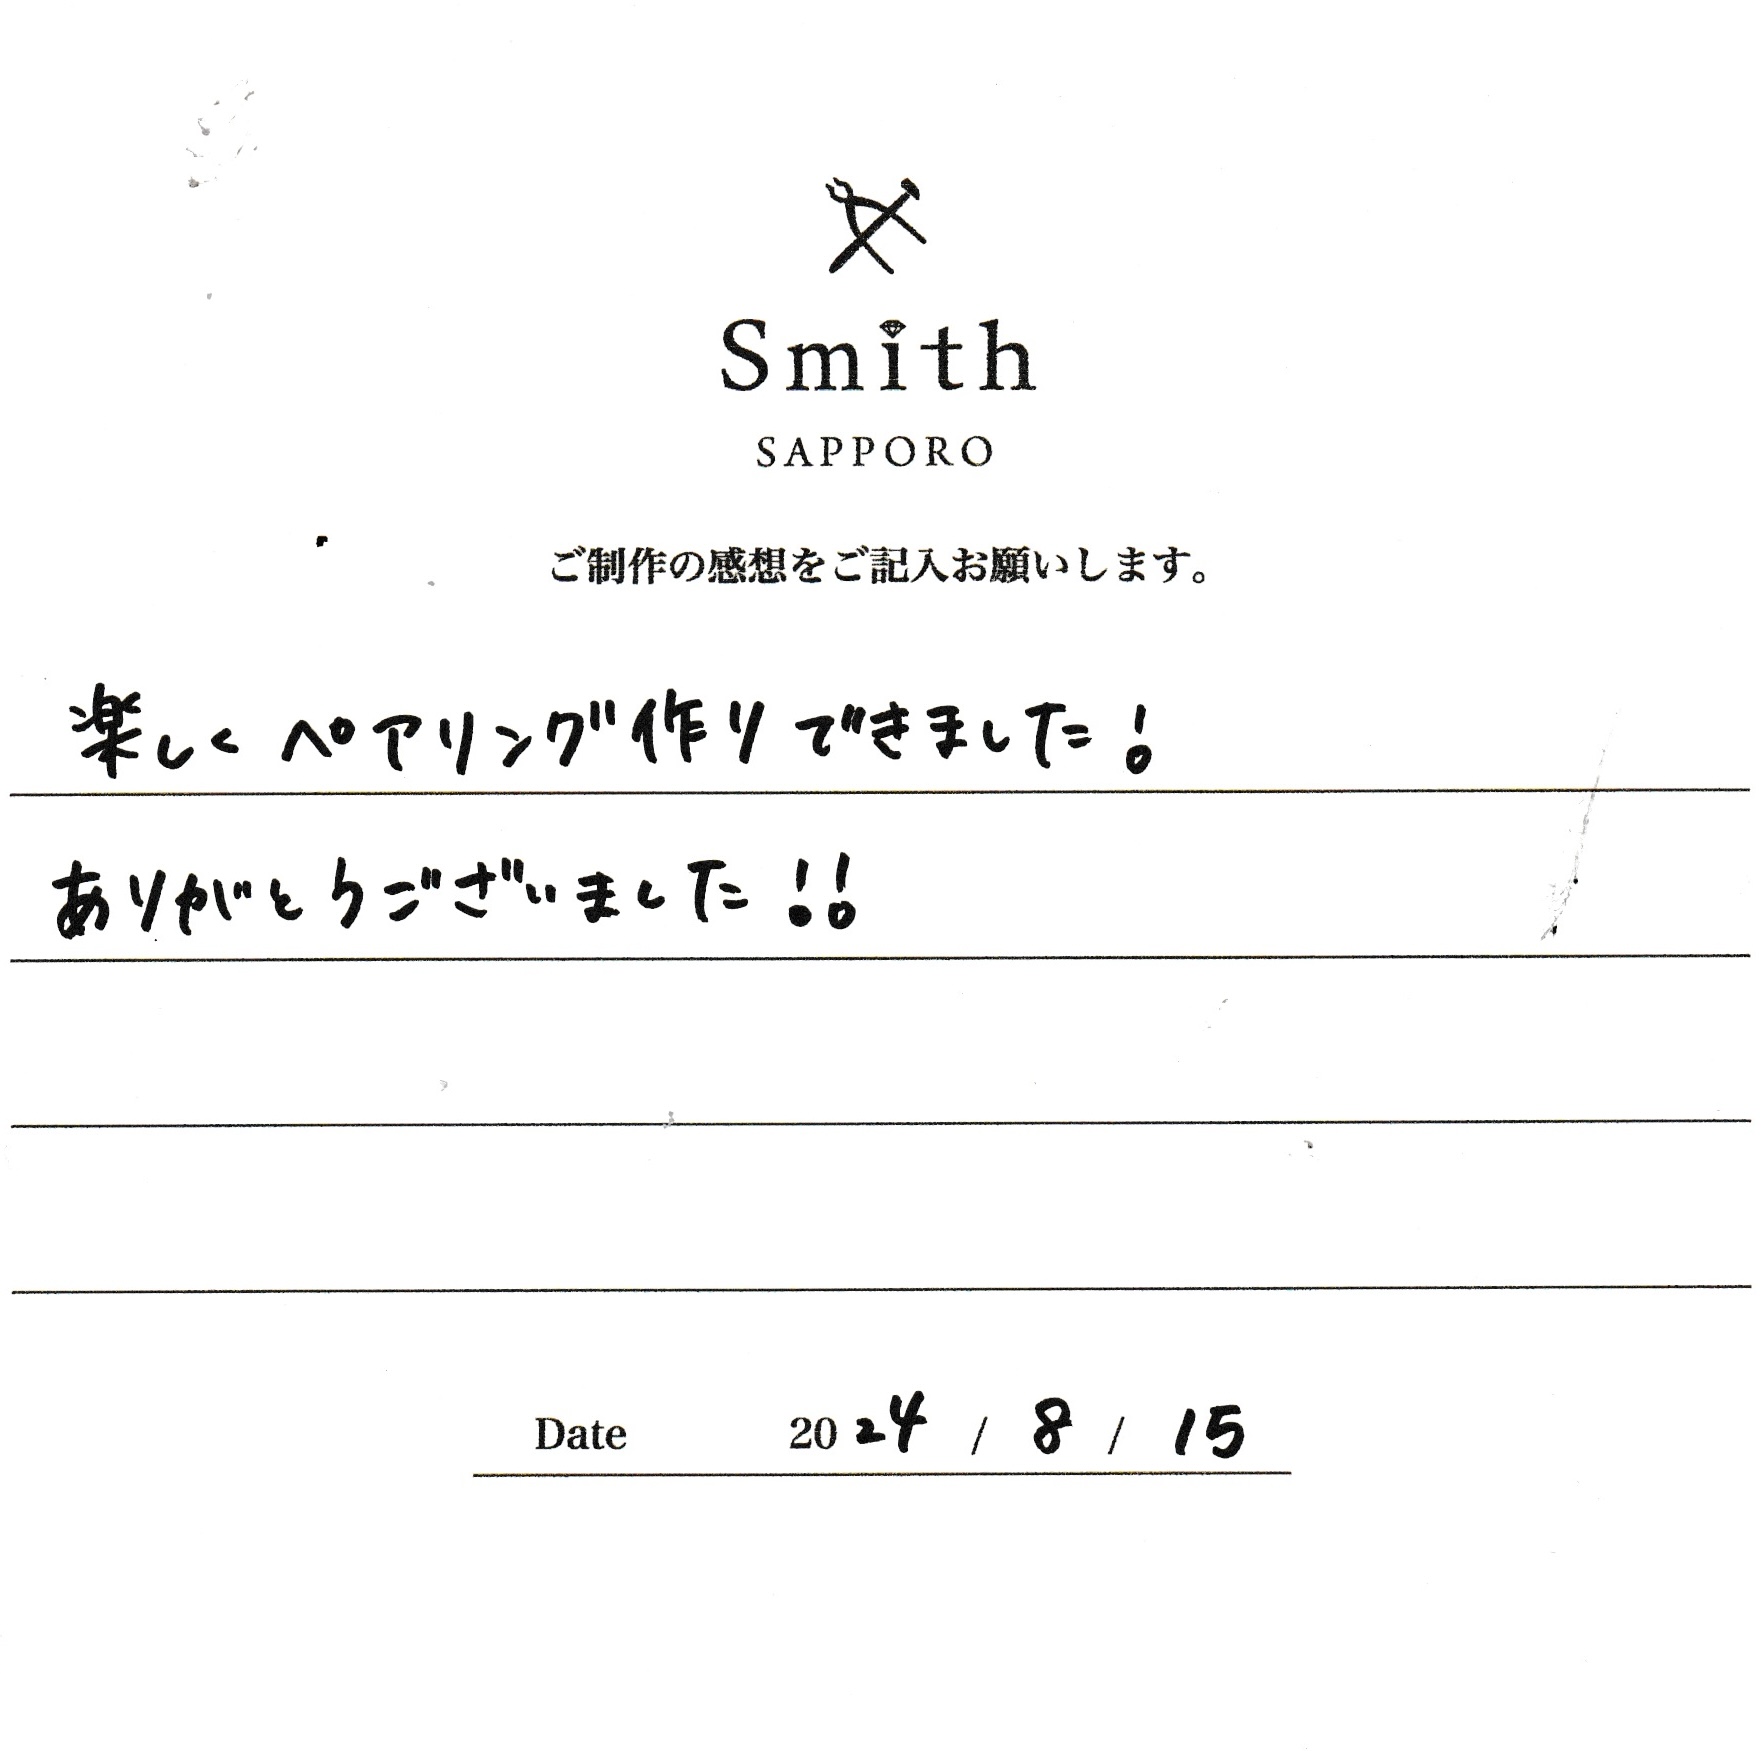 Smith
SAPPORO
ご制作の感想をご記入お願いします。
楽しくペアリング作りできました!
ありがとうございました!!
Date 2024 / 8 / 15